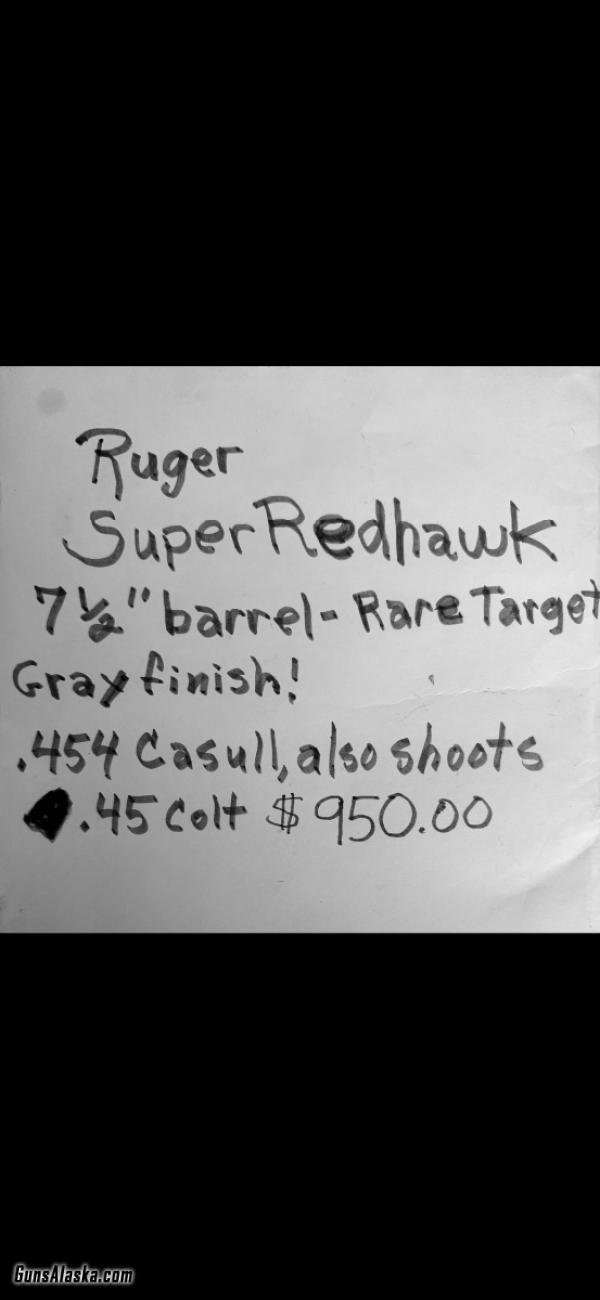 Ruger
Super Redhawk
7 1/2" barrel - Rare Target
Gray finish!
.454 Casull, also shoots
.45 Colt $950.00
GunsAlaska.com